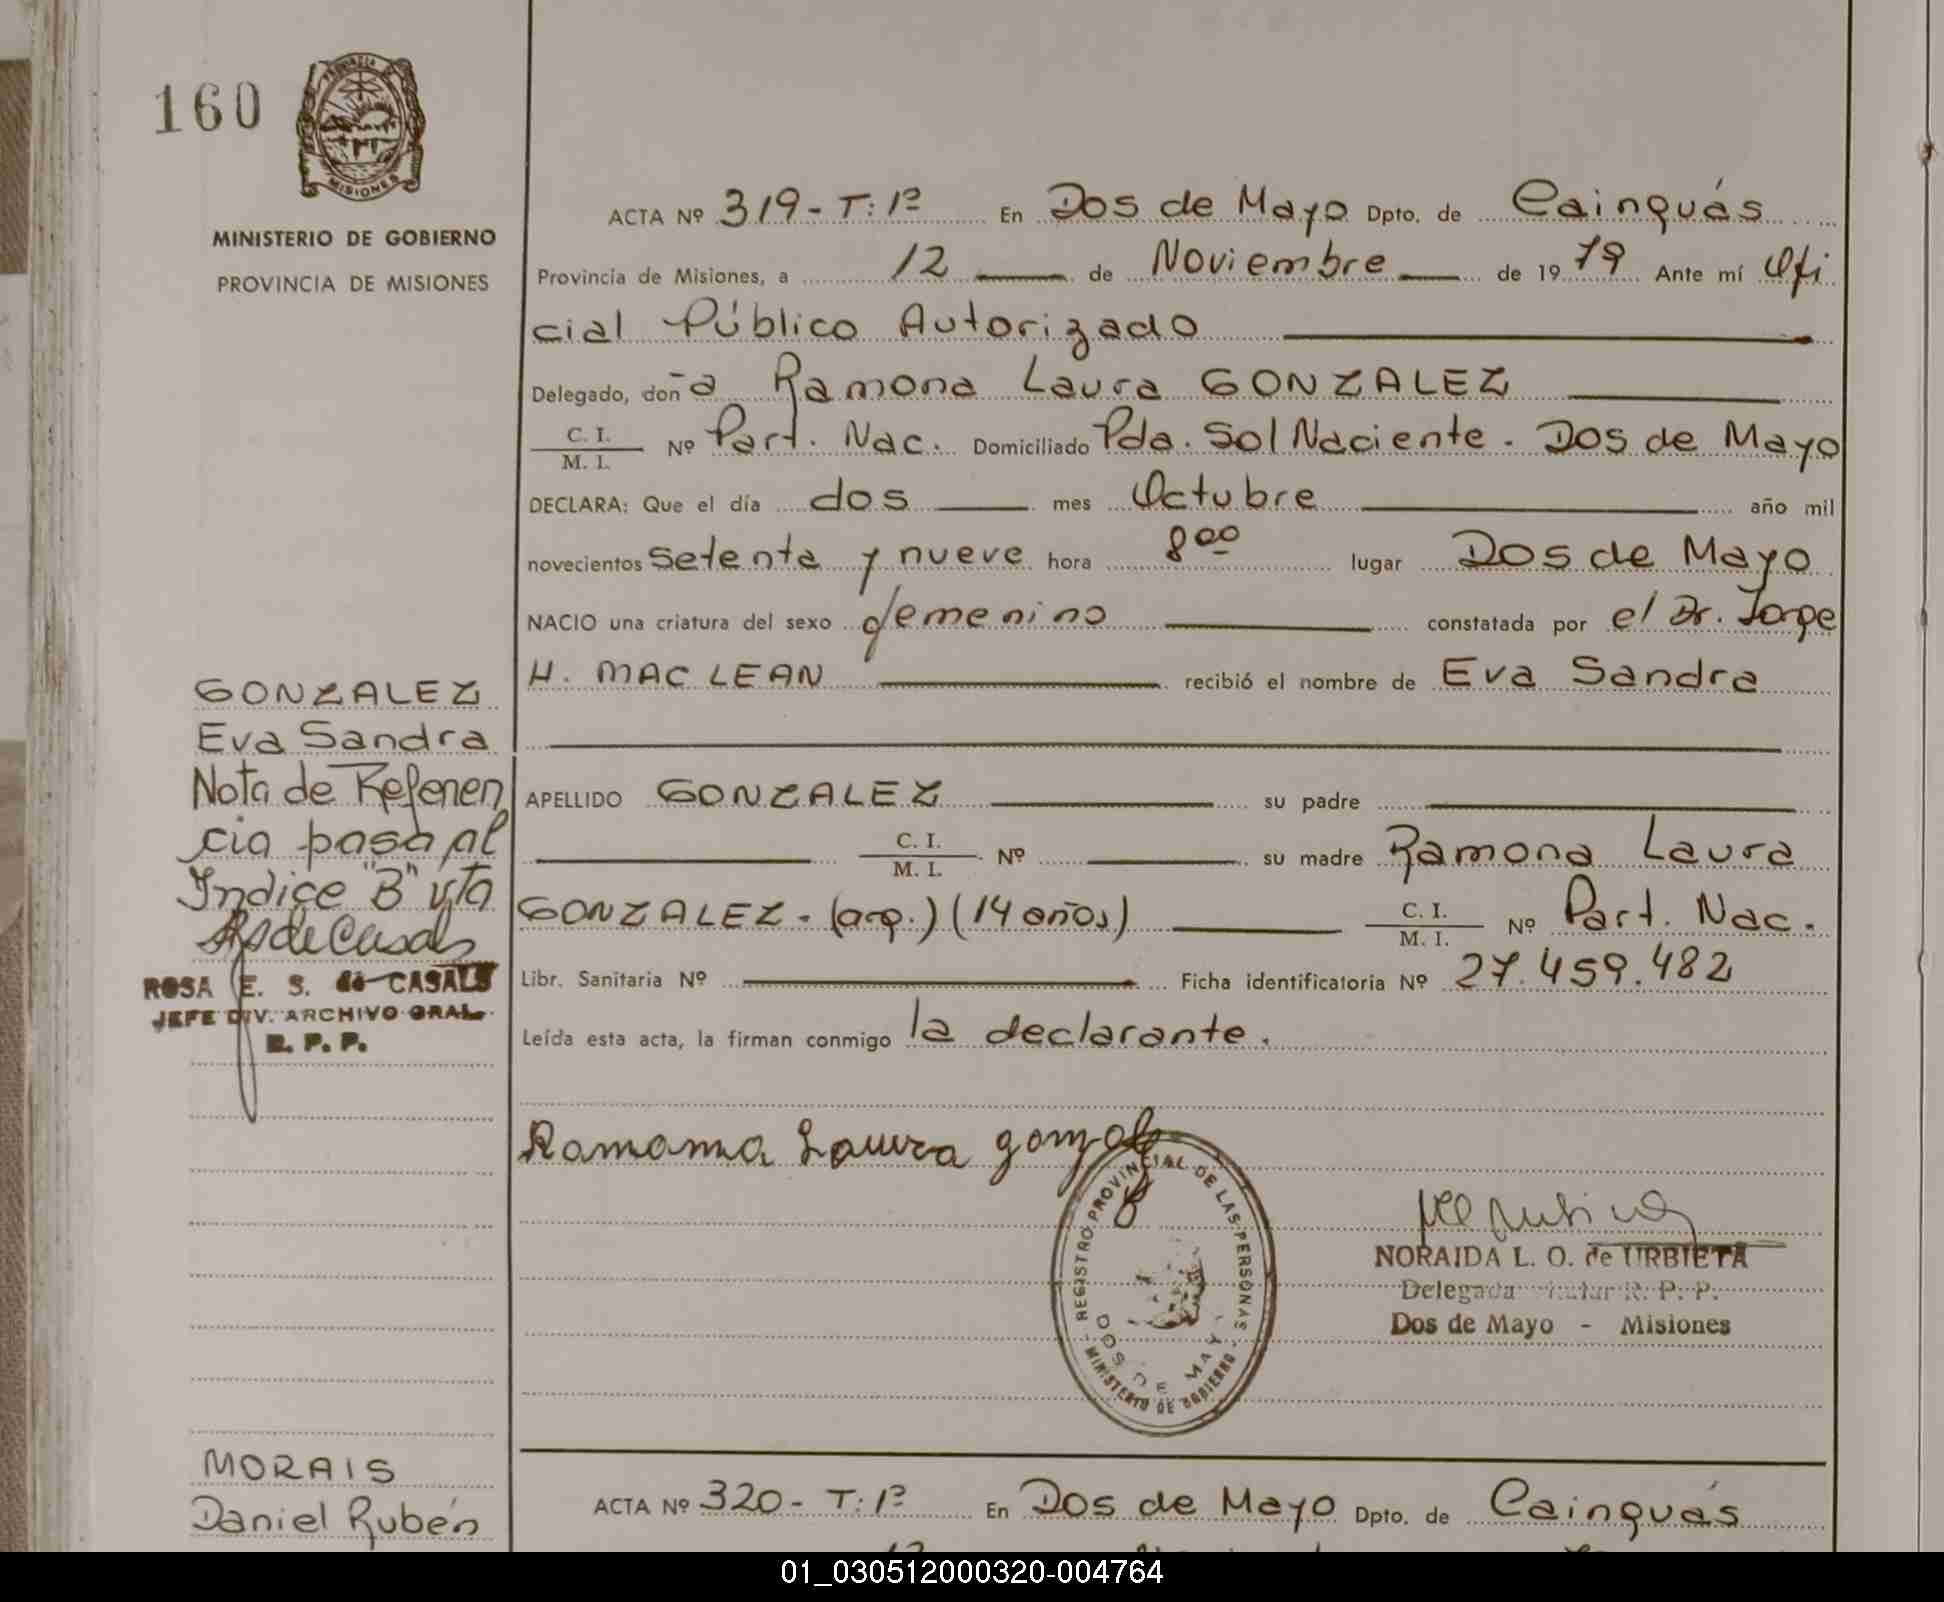 160
PROVINCIA DE
MISIONES
MINISTERIO DE GOBIERNO
PROVINCIA DE MISIONES
ACTA Nº 319 - T: 1º En Dos de Mayo Dpto. de Cainguás
Provincia de Misiones, a 12 de Noviembre de 19 79 Ante mí Ofi
cial Público Autorizado
Delegado, doña Ramona Laura GONZALEZ
C. I.
M. I. Nº Part. Nac. Domiciliado Pda. Sol Naciente - Dos de Mayo
DECLARA: Que el día dos mes Octubre año mil
novecientos setenta y nueve hora 8 00 lugar Dos de Mayo
NACIO una criatura del sexo femenino constatada por el Dr. Jorge
H. MAC LEAN recibió el nombre de Eva Sandra
GONZALEZ
Eva Sandra
Nota de Referen
cia pasa al
Indice "B" vta
RsdeCasals
ROSA E. S. de CASALS
JEFE DIV. ARCHIVO GRAL.
R. P. P.
APELLIDO GONZALEZ su padre
C. I.
M. I. Nº su madre Ramona Laura
GONZALEZ - (arg.) (14 años) C. I.
M. I. Nº Part. Nac.
Libr. Sanitaria Nº Ficha identificatoria Nº 27.459.482
Leída esta acta, la firman conmigo la declarante.
Ramona Laura gonzalez
REGISTRO PROVINCIAL DE LAS PERSONAS
DOS DE MAYO
MINISTERIO DE GOBIERNO
NORAIDA L. O. de URBIETA
Delegada Titular R. P. P.
Dos de Mayo - Misiones
MORAIS
Daniel Rubén
ACTA Nº 320 - T: 1º En Dos de Mayo Dpto. de Cainguás
01_030512000320-004764